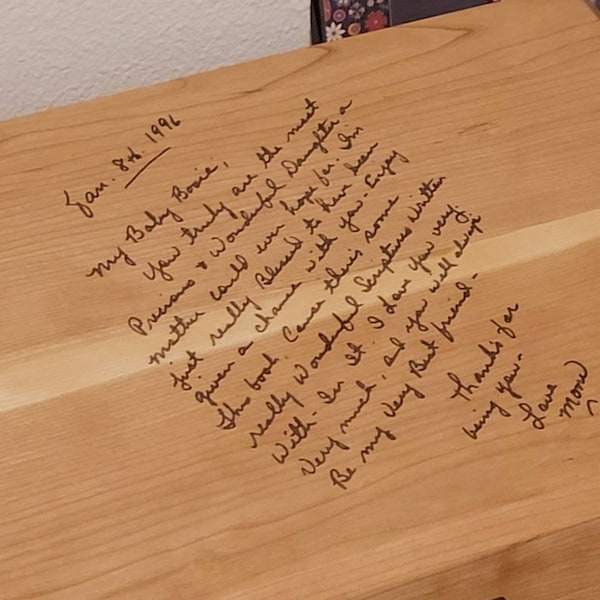 Jan. 8th. 1996
My Baby Rosie,
You truly are the most
Precious & Wonderful Daughter a
Mother could ever hope for. Im
just really Blessed to have been
given a chance with you. Enjoy
this book. Cause theirs some
really Wonderful Scriptures Written
With-In It. I Love you very,
Very much, and you will always
Be my Very Best friend-
Thanks for
being you-
Love
Mom